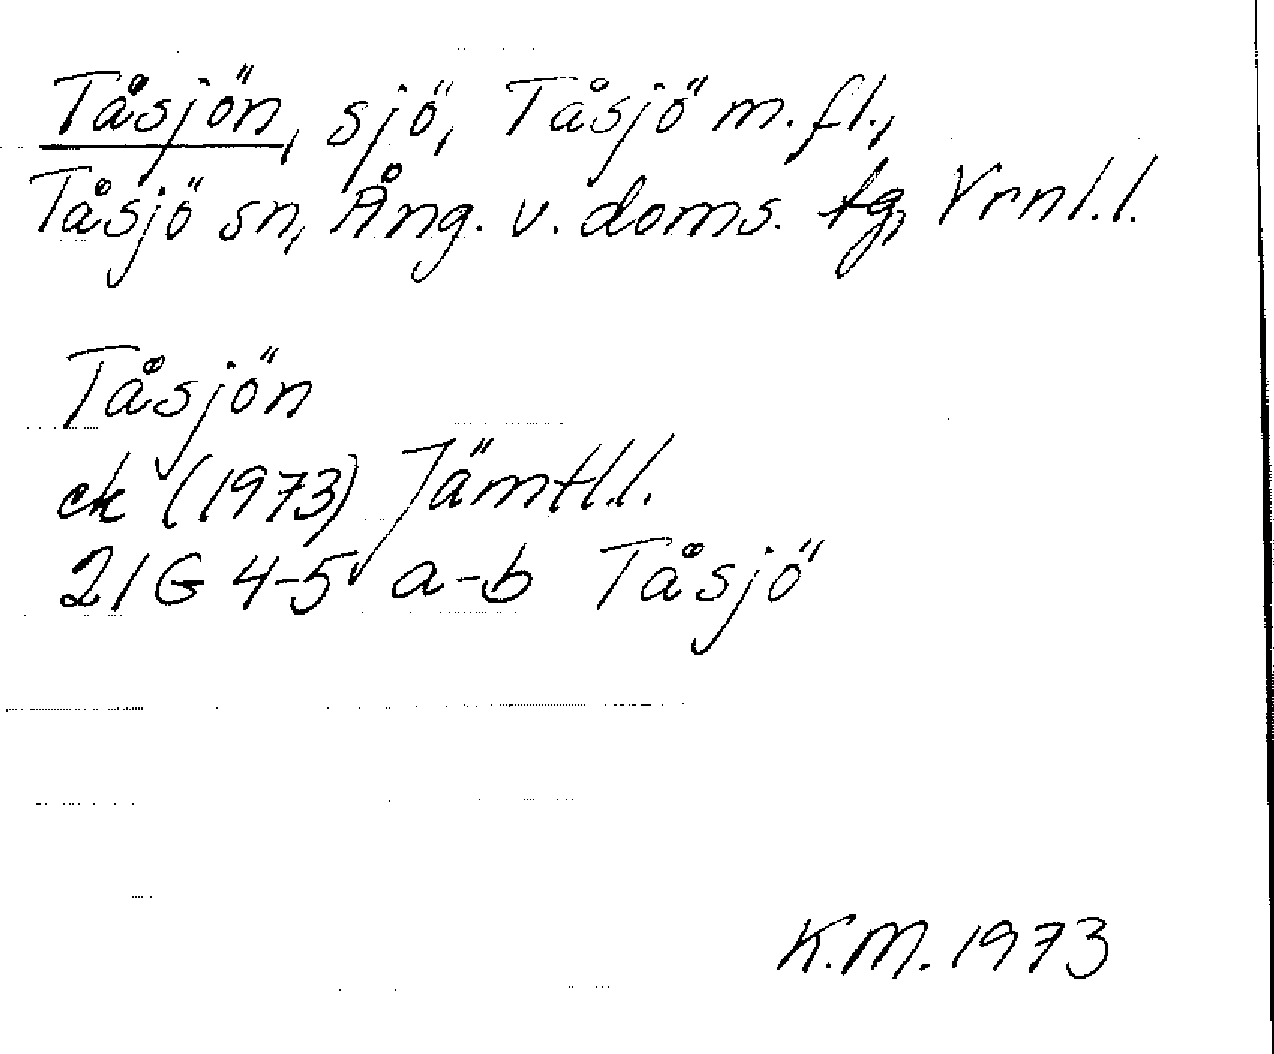 Tåsjön, sjö, Tåsjö m.fl.,
Tåsjö sn, Ång. v. doms. tg, Vrnl.l.
Tåsjön
ek (1973) Jämtl.l.
21G 4-5 a-b Tåsjö
K.M. 1973